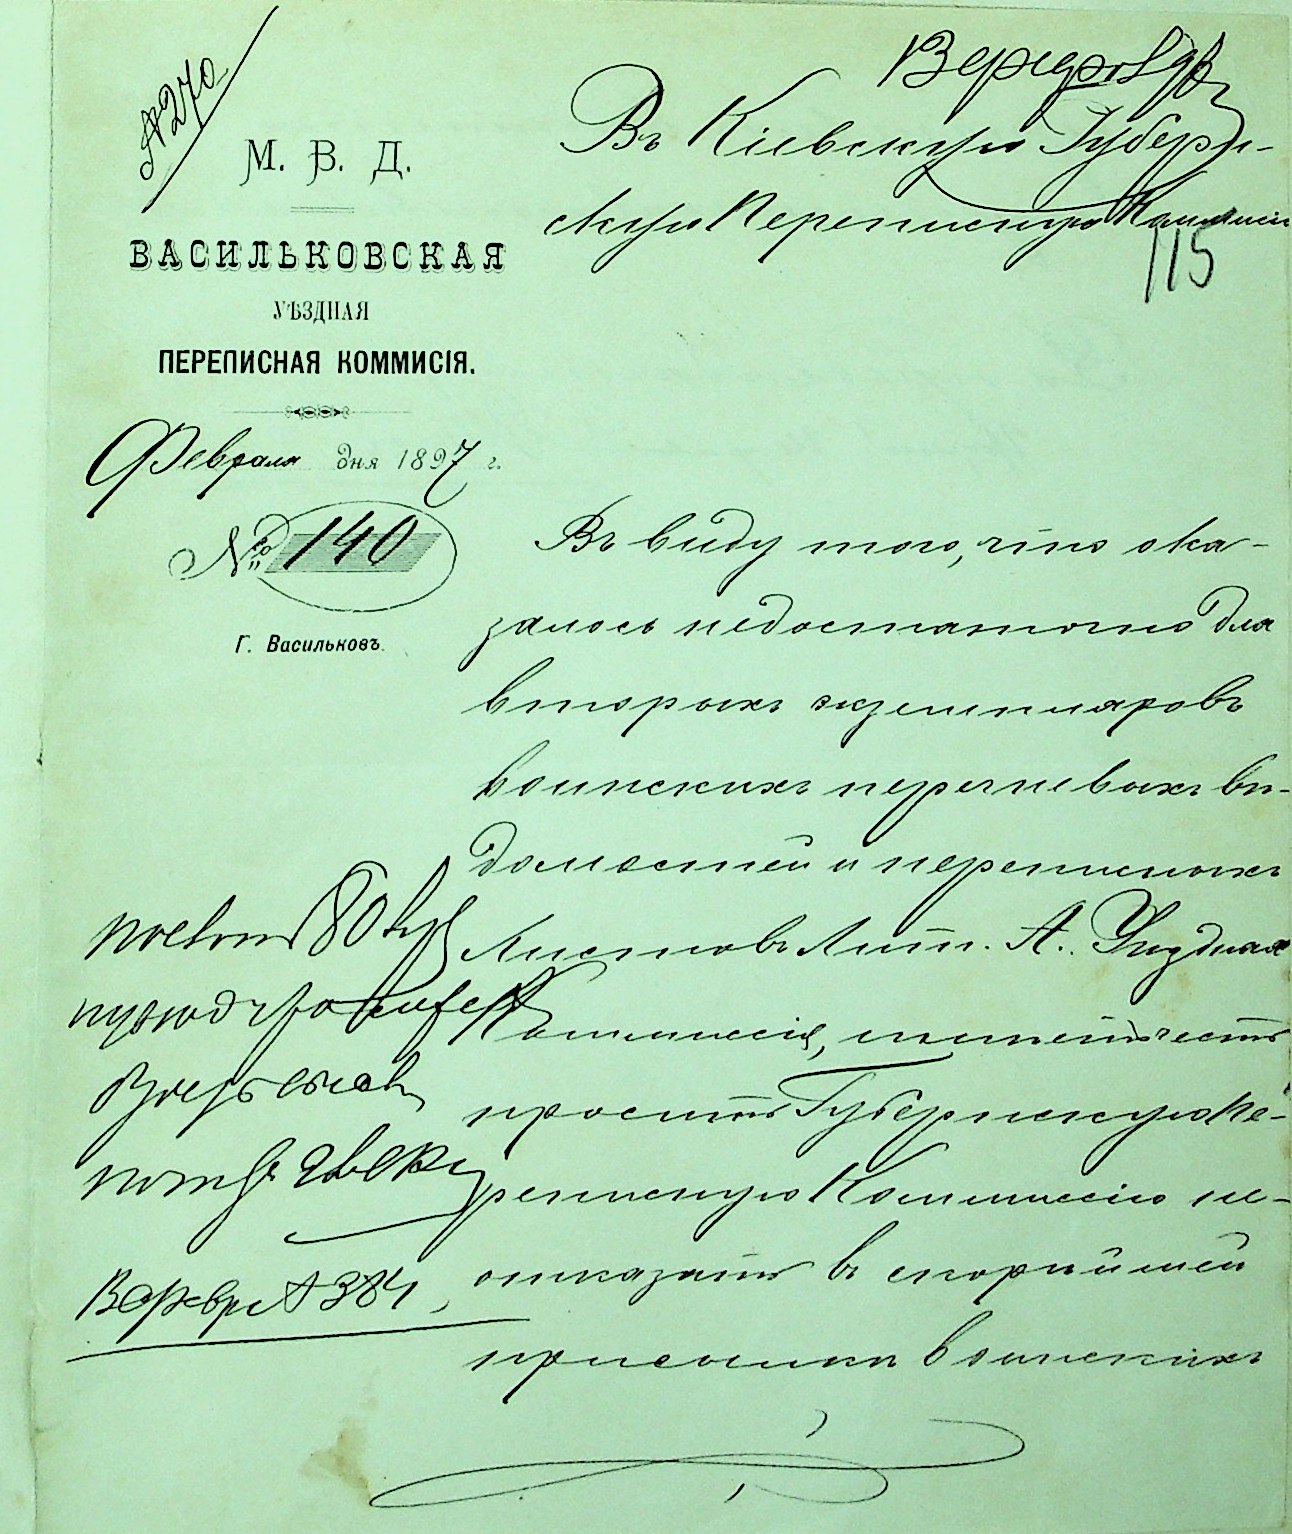 № 270
М. В. Д.
ВАСИЛЬКОВСКАЯ
УѢЗДНАЯ
ПЕРЕПИСНАЯ КОММИСІЯ.
Февраля дня 1897 г.
№ 140
Г. Васильковъ.
Въ Кіевскую Губерн-
скую Переписную Коммисію
115
Въ виду того, что ока-
залось недостаточно для
вторыхъ экземпляровъ
воинскихъ перечневыхъ вѣ-
домостей и переписныхъ
листовъ Лит. А. Уѣздная
Коммиссія, имѣетъ честь
просить Губернскую Пе-
реписную Коммиссію не
отказать въ скорѣйшей
присылки воинскихъ
80
2 февр № 384